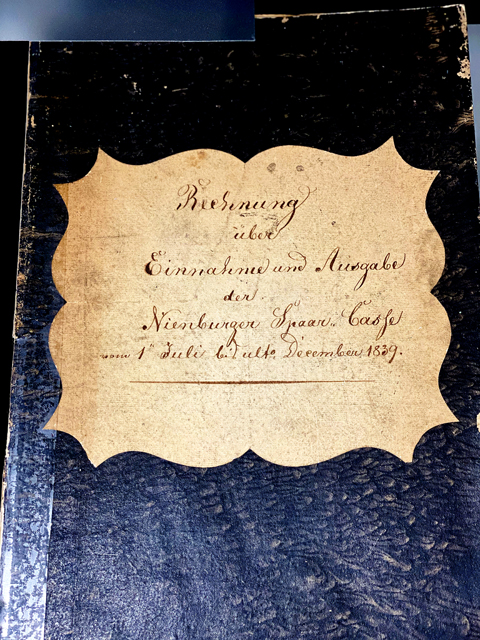 Rechnung
über
Einnahme und Ausgabe
der
Nienburger Spaar-Casse
vom 1ⁿ Juli b. ult. December 1839.